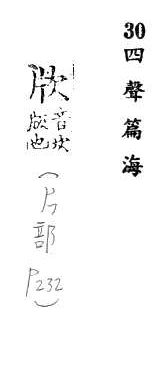 30四聲篇海
音坎
也
(片部P232)